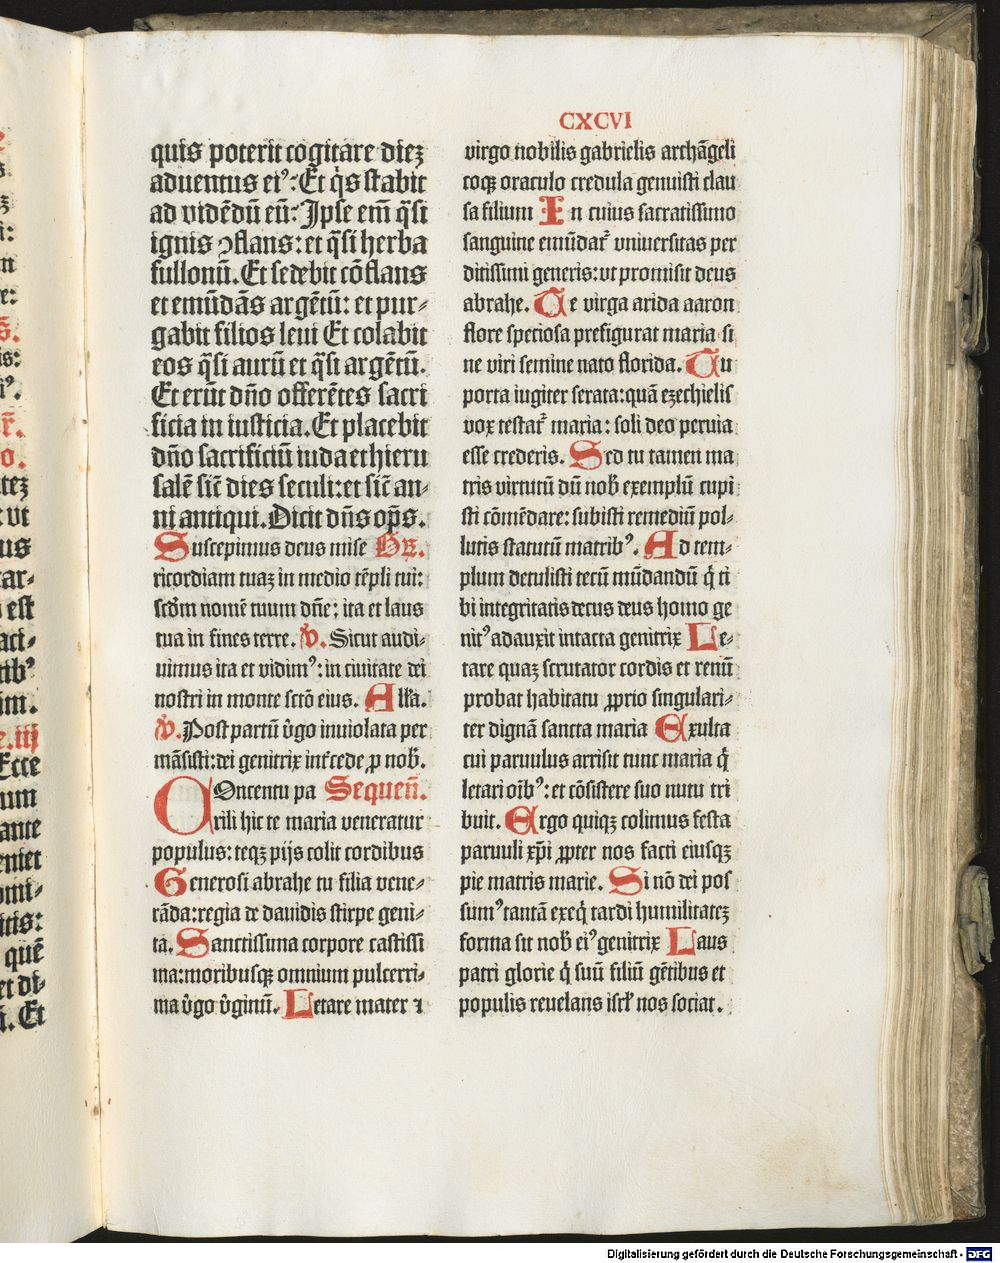 CXCVI
quis poterit cogitare dieʒ
aduentus eiꝰ: Et q̇s stabit
ad vidēdū eū: Ipse em̄ q̄si
ignis ꝯflans: et q̄si herba
fullonū. Et sedebit cōflans
et emūdās argētū: et pur⸗
gabit filios leui Et colabit
eos q̄si aurū et q̄si argētū.
Et erūt dn̄o offerētes sacri
ficia in iusticia. Et placebit
dn̄o sacrificiū iuda et hieru
salē sic̄ dies seculi: et sic̄ an⸗
ni antiqui. Dicit dn̄s op̄s.
Suscepimus deus mise Gr̄.
ricordiam tuaʒ in medio tēpli tui:
scd̄m nomē tuum dn̄e: ita et laus
tua in fines terre. v̄. Sicut audi⸗
uimus ita et vidimꝰ: in ciuitate dei
nostri in monte sctō eius. Alła.
v̄. Post partū v̇go inuiolata per
māsisti: dei genitrix int̄cede ꝓ nob̄.
COncentu pa Sequen̄.
rili hic te maria veneratur
populus: teqꝫ pijs colit cordibus
Generosi abrahe tu filia vene⸗
rāda: regia de dauidis stirpe geni⸗
ta. Sanctissima corpore castissi
ma: moribusqꝫ omnium pulcerri⸗
ma v̇go v̇ginū. Letare mater ⁊
virgo nobilis gabrielis archāgeli
coqꝫ oraculo credula genuisti clau
sa filium In cuius sacratissimo
sanguine emūdat᷑ vniuersitas per
ditissimi generis: vt promisit deus
abrahe. Te virga arida aaron
flore speciosa prefigurat maria si
ne viri semine nato florida. Tu
porta iugiter serata: quā ezechielis
vox testat᷑ maria: soli deo peruia
esse crederis. Sed tu tamen ma
tris virtutū dū nob̄ exemplū cupi
sti cōmēdare: subisti remediū pol⸗
lutis statutū matribꝰ. Ad tem⸗
plum detulisti tecū mūdandū q̇ ti
bi integritatis decus deus homo ge
nitꝰ adauxit intacta genitrix Le⸗
tare quaʒ scrutator cordis et renū
probat habitatu ꝓprio singulari⸗
ter dignā sancta maria Exulta
cui paruulus arrisit tunc maria q̇
letari oībꝰ: et cōsistere suo nutu tri
buit. Ergo quiqꝫ colimus festa
paruuli xp̄i ꝓpter nos facti eiusqꝫ
pie matris marie. Si nō dei pos
sumꝰ tantā exeq̇ tardi humilitateʒ
forma sit nob̄ eiꝰ genitrix Laus
patri glorie q̇ suū filiū gētibus et
populis reuelans isrł nos sociat.
Digitalisierung gefördert durch die Deutsche Forschungsgemeinschaft - DFG